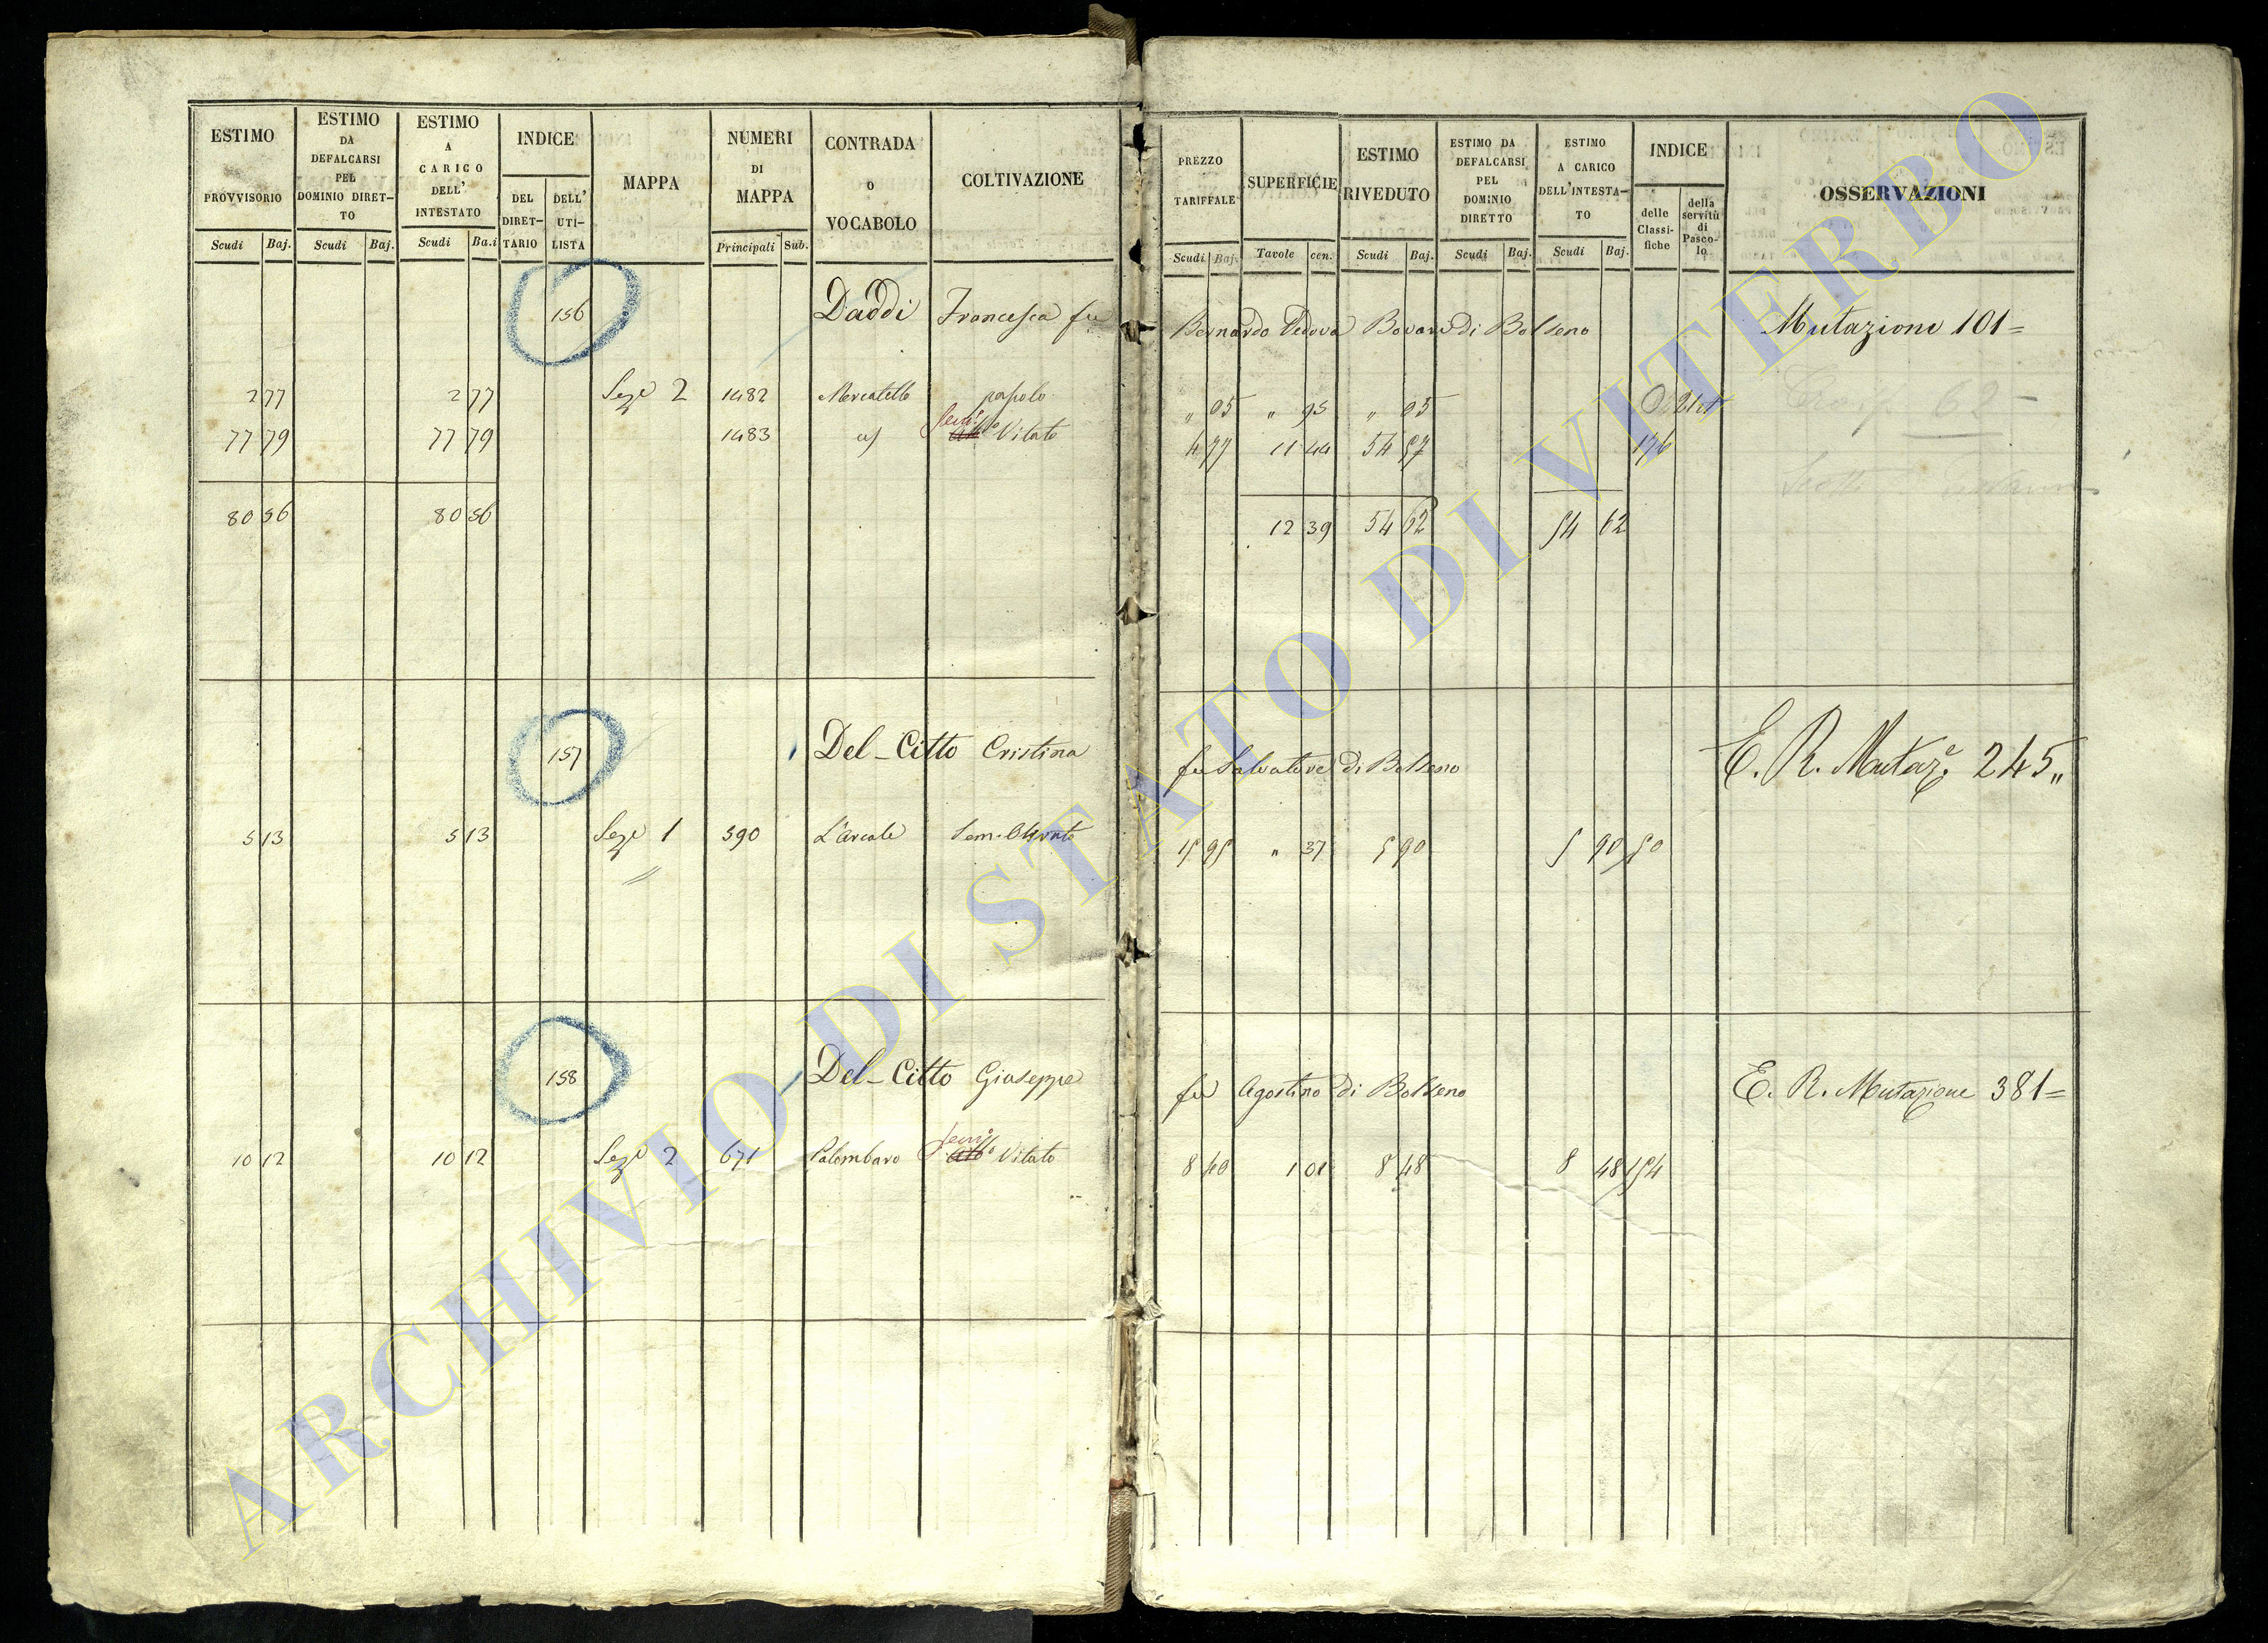 ESTIMO PROVVISORIO
Scudi Baj.
ESTIMO DA DEFALCARSI PEL DOMINIO DIRET–TO
Scudi Baj.
ESTIMO A CARICO DELL' INTESTATO
Scudi Ba.i
INDICE
DEL DIRET–TARIO
DELL' UTI–LISTA
MAPPA
NUMERI DI MAPPA
Principali Sub.
CONTRADA O VOCABOLO
COLTIVAZIONE
PREZZO TARIFFALE
Scudi Baj.
SUPERFICIE
Tavole cen.
ESTIMO RIVEDUTO
Scudi Baj.
ESTIMO DA DEFALCARSI PEL DOMINIO DIRETTO
Scudi Baj.
ESTIMO A CARICO DELL'INTESTA–TO
Scudi Baj.
INDICE
delle Classi–fiche
della servitù di Pasco–lo
OSSERVAZIONI
156 Daddi Francesca fu Bernardo Vedova Bovari di Bolseno Mutazione 101=
2 77 2 77 Seze 2 1482 Mercatello pascolo " 05 " 95 " 05
77 79 77 79 1483 Vitato 4 77 11 44 54 57 176
80 56 80 56 12 39 54 62 54 62
62
157 Del-Citto Cristina fu Salvatore di Bolseno E. R. Mutaze. 245"
5 13 5 13 Seze 1 590 L'Arcale Sem. Olivato 15 95 " 37 5 90 5 90 50
158 Del-Citto Giuseppe fu Agostino di Bolseno E. R. Mutazione 381=
10 12 10 12 Seze 2 671 Palombaro Vitato 8 40 1 01 8 48 8 48 154
ARCHIVIO DI STATO DI VITERBO